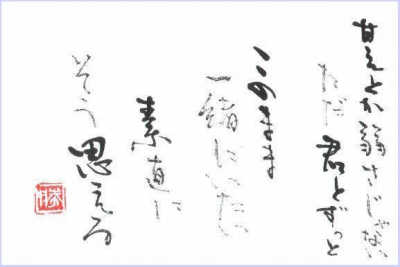 甘えとか弱さじゃない
ただ君とずっと
このまま
一緒にいたい
素直に
そう思える